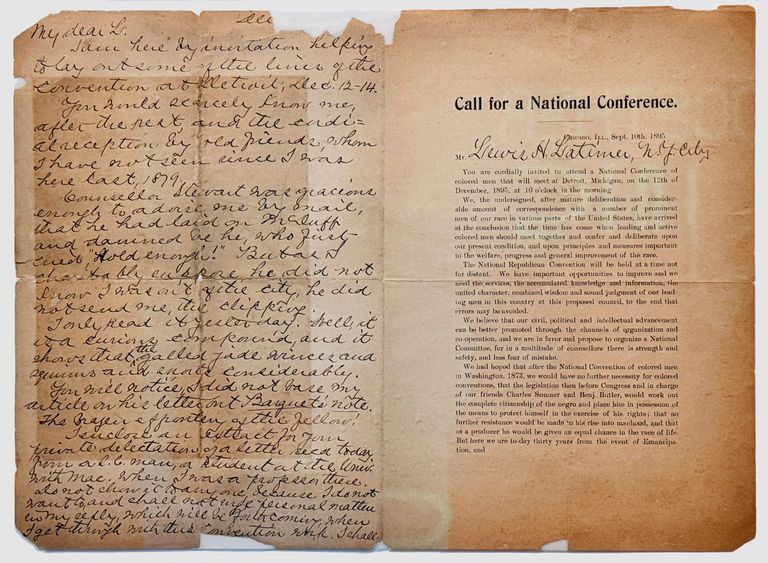 Dec
My dear L.
I am here by invitation helping
to lay out some of the lines of the
convention at Detroit, Dec. 12-14.
You would scarcely know me,
after the rest and the cordi=
al reception by old friends, whom
I have not seen since I was
here last, 1879.
Counsellor Stewart was gracious
enough to advise me by mail,
that he had laid on McDuff
and damned be he, who first
cried "Hold enough!" But as I
charitably suppose he did not
know I was out of the city, he did
not send me, the clipping.
I only read it yesterday. Well, it
is a curious compound, and it
shows that the galled jade winces and
squirms and snorts considerably.
You will notice, I did not base my
article on his letter but Barquet's note.
The brazen effrontery of the fellow!
I enclose an extract for your
private delectation of a letter rec'd today,
from a S.C. man, a student at the Univ.
with Mac. when I was a professor there.
Do not show it to any one, because I do not
want to, and shall not use personal matter
in my reply, which will be forthcoming when
I get through with this Convention work. I shall
Call for a National Conference.
Chicago, Ill., Sept. 10th, 1895.
Mr. Lewis H. Latimer, N.Y. City
You are cordially invited to attend a National Conference of
colored men that will meet at Detroit, Michigan, on the 12th of
December, 1895, at 10 o'clock in the morning.
We, the undersigned, after mature deliberation and consider-
able amount of correspondence with a number of prominent
men of our race in various parts of the United States, have arrived
at the conclusion that the time has come when leading and active
colored men should meet together and confer and deliberate upon
our present condition, and upon principles and measures important
to the welfare, progress and general improvement of the race.
The National Republican Convention will be held at a time not
far distant. We have important opportunities to improve and we
need the services, the accumulated knowledge and information, the
united character, combined wisdom and sound judgment of our lead-
ing men in this country at this proposed council, to the end that
errors may be avoided.
We believe that our civil, political and intellectual advancement
can be better promoted through the channels of organization and
co-operation, and we are in favor and propose to organize a National
Committee, for in a multitude of counsellors there is strength and
safety, and less fear of mistake.
We had hoped that after the National Convention of colored men
in Washington, 1873, we would have no further necessity for colored
conventions, that the legislation then before Congress and in charge
of our friends Charles Sumner and Benj. Butler, would work out
the complete citizenship of the negro and place him in possession of
the means to protect himself in the exercise of his rights; that no
further resistance would be made to his rise into manhood, and that
as a producer he would be given an equal chance in the race of life.
But here we are to-day thirty years from the event of Emancipa-
tion, and